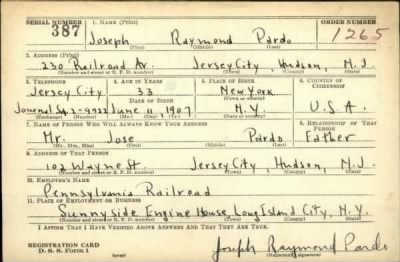 SERIAL NUMBER 1. NAME (Print) ORDER NUMBER
387 Joseph Raymond Pardo 1265
(First) (Middle) (Last)
2. ADDRESS (Print)
230 Railroad Av. Jersey City, Hudson, N.J.
(Number and street or R. F. D. number) (Town) (County) (State)
3. TELEPHONE 4. AGE IN YEARS 5. PLACE OF BIRTH 6. COUNTRY OF CITIZENSHIP
Jersey City 33 New York
DATE OF BIRTH (Town or county)
Journal Sq. 2-9922 June 11, 1907 N.Y. U.S.A.
(Exchange) (Number) (Mo.) (Day) (Yr.) (State or country)
7. NAME OF PERSON WHO WILL ALWAYS KNOW YOUR ADDRESS 8. RELATIONSHIP OF THAT PERSON
Mr. Jose Pardo Father
(Mr., Mrs., Miss) (First) (Middle) (Last)
9. ADDRESS OF THAT PERSON
102 Wayne St. Jersey City, Hudson, N.J.
(Number and street or R. F. D. number) (Town) (County) (State)
10. EMPLOYER'S NAME
Pennsylvania Railroad
11. PLACE OF EMPLOYMENT OR BUSINESS
Sunnyside Engine House Long Island City, N.Y.
(Number and street or R. F. D. number) (Town) (County) (State)
I AFFIRM THAT I HAVE VERIFIED ABOVE ANSWERS AND THAT THEY ARE TRUE.
REGISTRATION CARD
D. S. S. Form 1 Joseph Raymond Pardo
(over) (Registrant's signature)